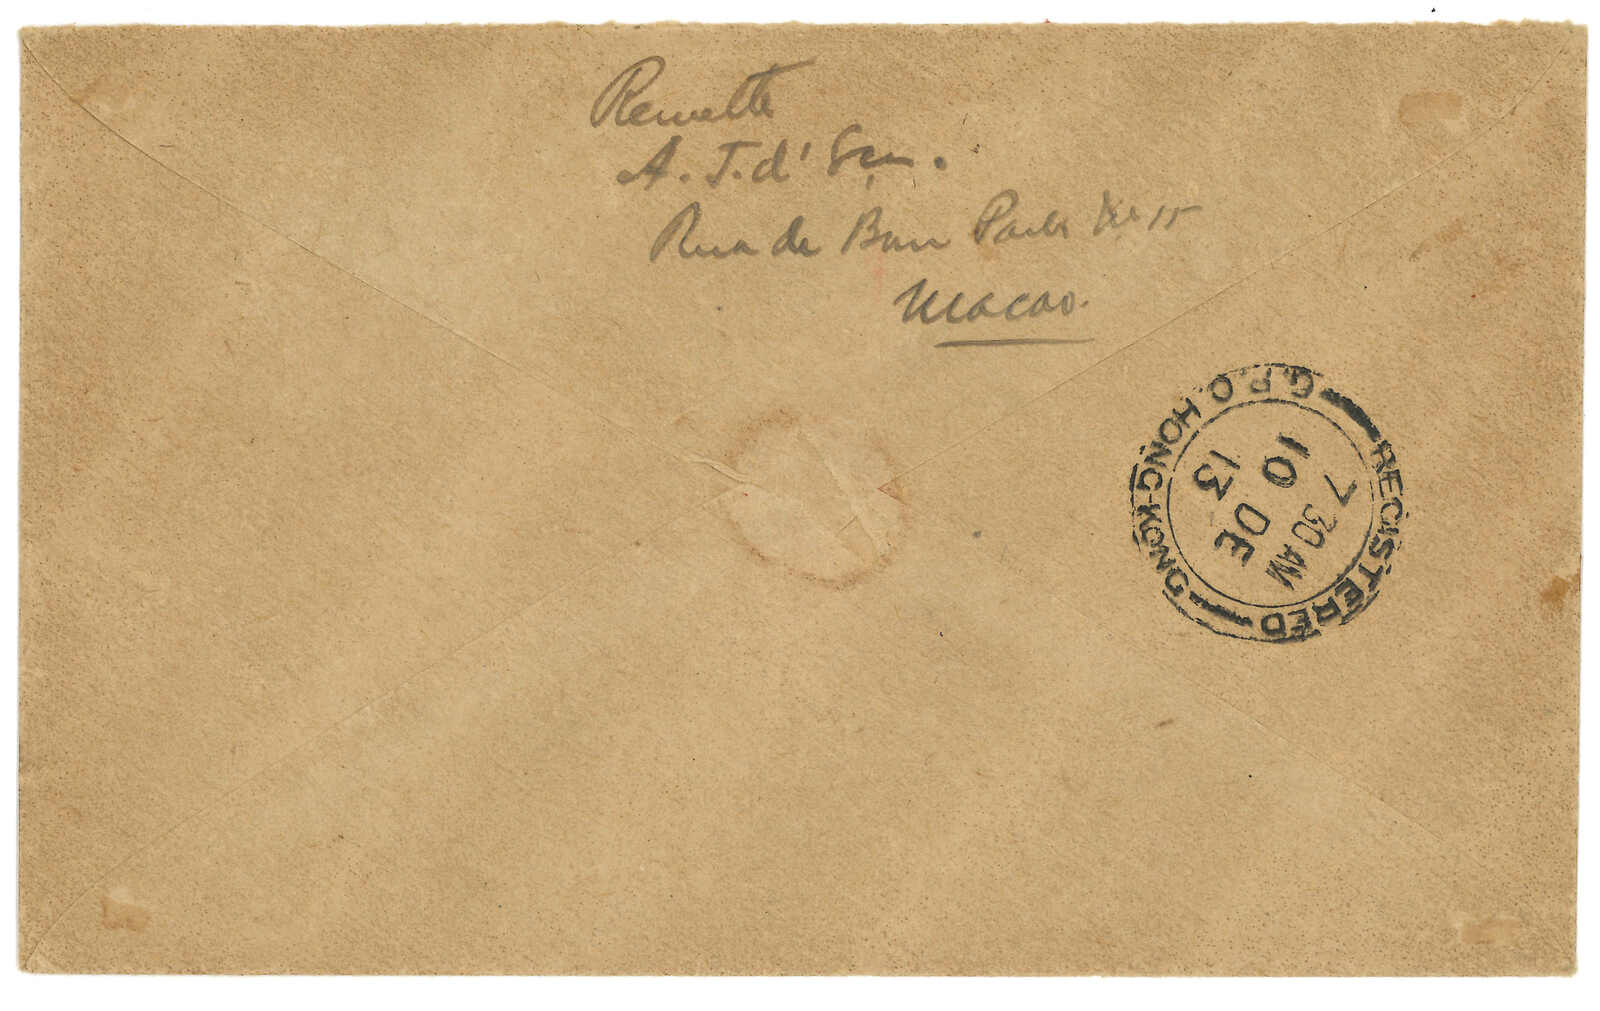 Remette
A. J. d'
Rua de No 15
Macao.
REGISTERED
G.P.O HONG-KONG
7 30 AM
10 DE
13